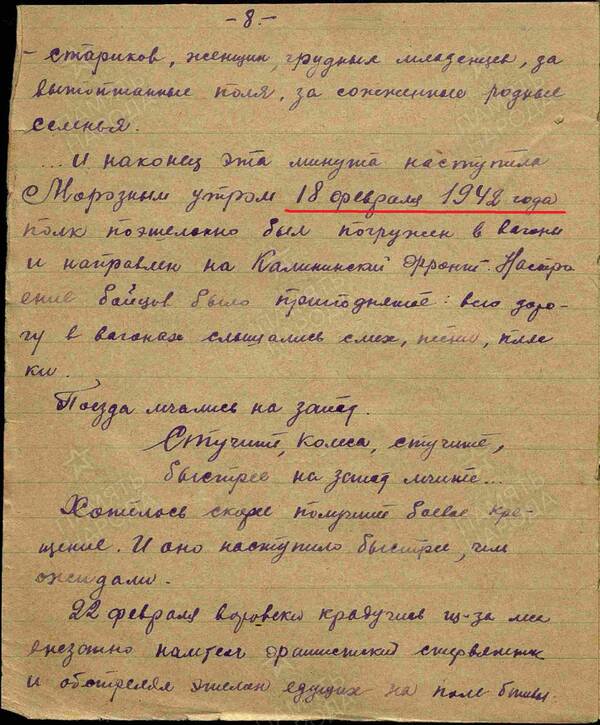 - 8. -
- стариков, женщин, грудных младенцев, за
вытоптанные поля, за сожженные родные
семенья.
... И наконец эта минута наступила
Морозным утром 18 февраля 1942 года
полк поэшелонно был погружен в вагоны
и направлен на Калининский фронт. Настро
ение бойцов было приподнятое: всю доро-
гу в вагонах слышались смех, песни, пляс
ки.
Поезда мчались на запад.
Стучите, колеса, стучите,
быстрее на запад мчите...
Хотелось скорее получить боевое кре-
щение. И оно наступило быстрее, чем
ожидали.
22 февраля воровски крадучись из-за леса
внезапно налетел фашистский стервятник
и обстрелял эшелон едущих на поле битвы.